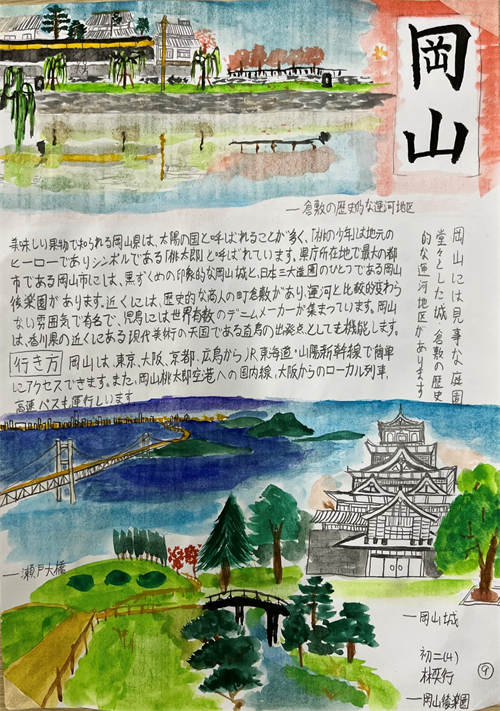 岡山
一倉敷の歴史的な運河地区
美味しい果物で知られる岡山県は、太陽の国と呼ばれることが多く、「桃の少年」は地元の
ヒーローでありシンボルである「桃太郎」とも呼ばれています。県庁所在地で最大の都
市である岡山市には、黒ずくめの印象的な岡山城と、日本三大造園のひとつである岡山
後楽園があります。近くには、歴史的な商人の町倉敷があり、運河と比較的変わら
ない雰囲気で有名で、児島には世界有数のデニムメーカーが集まっています。岡山
は、香川県の近くにある現代美術の天国である直島の出発点としても機能します。
行き方 岡山は、東京、大阪、京都、広島からJR東海道・山陽新幹線で簡単
にアクセスできます。また、岡山桃太郎空港への国内線、大阪からのローカル列車、
高速バスも運行しいます
岡山には見事な庭園
堂々とした城、倉敷の歴史
的な運河地区があります
一瀬戸大橋
一岡山城
初二(4)
林奕行
9
一岡山後楽園